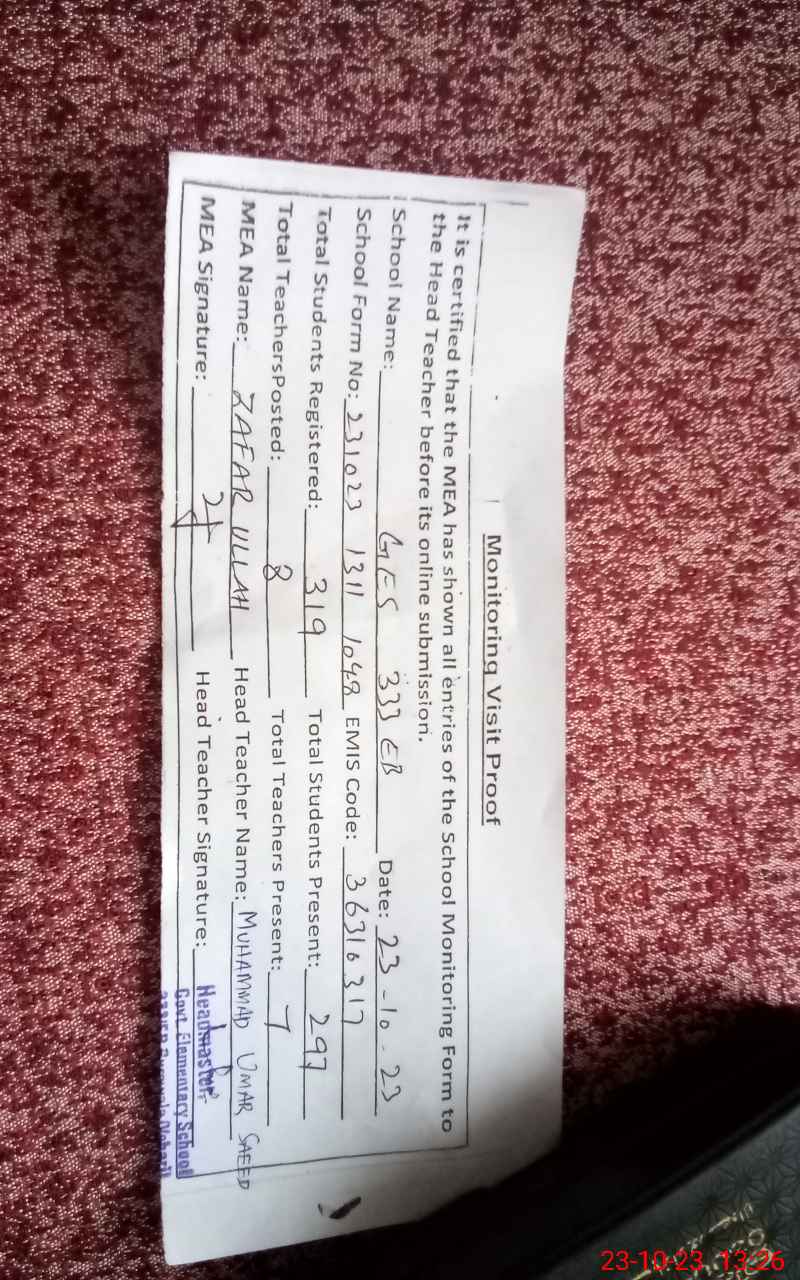 Monitoring Visit Proof
It is certified that the MEA has shown all entries of the School Monitoring Form to
the Head Teacher before its online submission.
School Name: GES 333 EB Date: 23-10-23
School Form No: 231023 1311 1048 EMIS Code: 36310317
Total Students Registered: 319 Total Students Present: 297
Total TeachersPosted: 8 Total Teachers Present: 7
MEA Name: ZAFAR ULLAH Head Teacher Name: MUHAMMAD UMAR SAEED
MEA Signature: Head Teacher Signature:
Headmaster
Govt. Elementary School
23-10-23 13:26